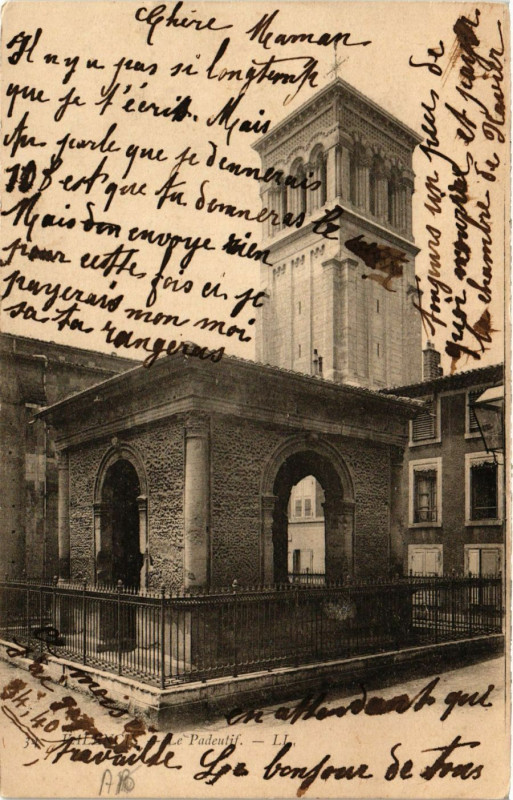 Chère Maman
Il n y a pas si longtemps
que je t'écrit. Mais
tu parle que je dennerais
10f est que tu donneras le
Mais don envoye rien
pour cette fois ci je
payerais mon moi
sa ta rangeras
toujours un peus de
quoi mangér et payér
la chambre de Xavier
34,40
travaille
en attendant que
Le bonjour de tous
Le Padeutif. — LL.
AB